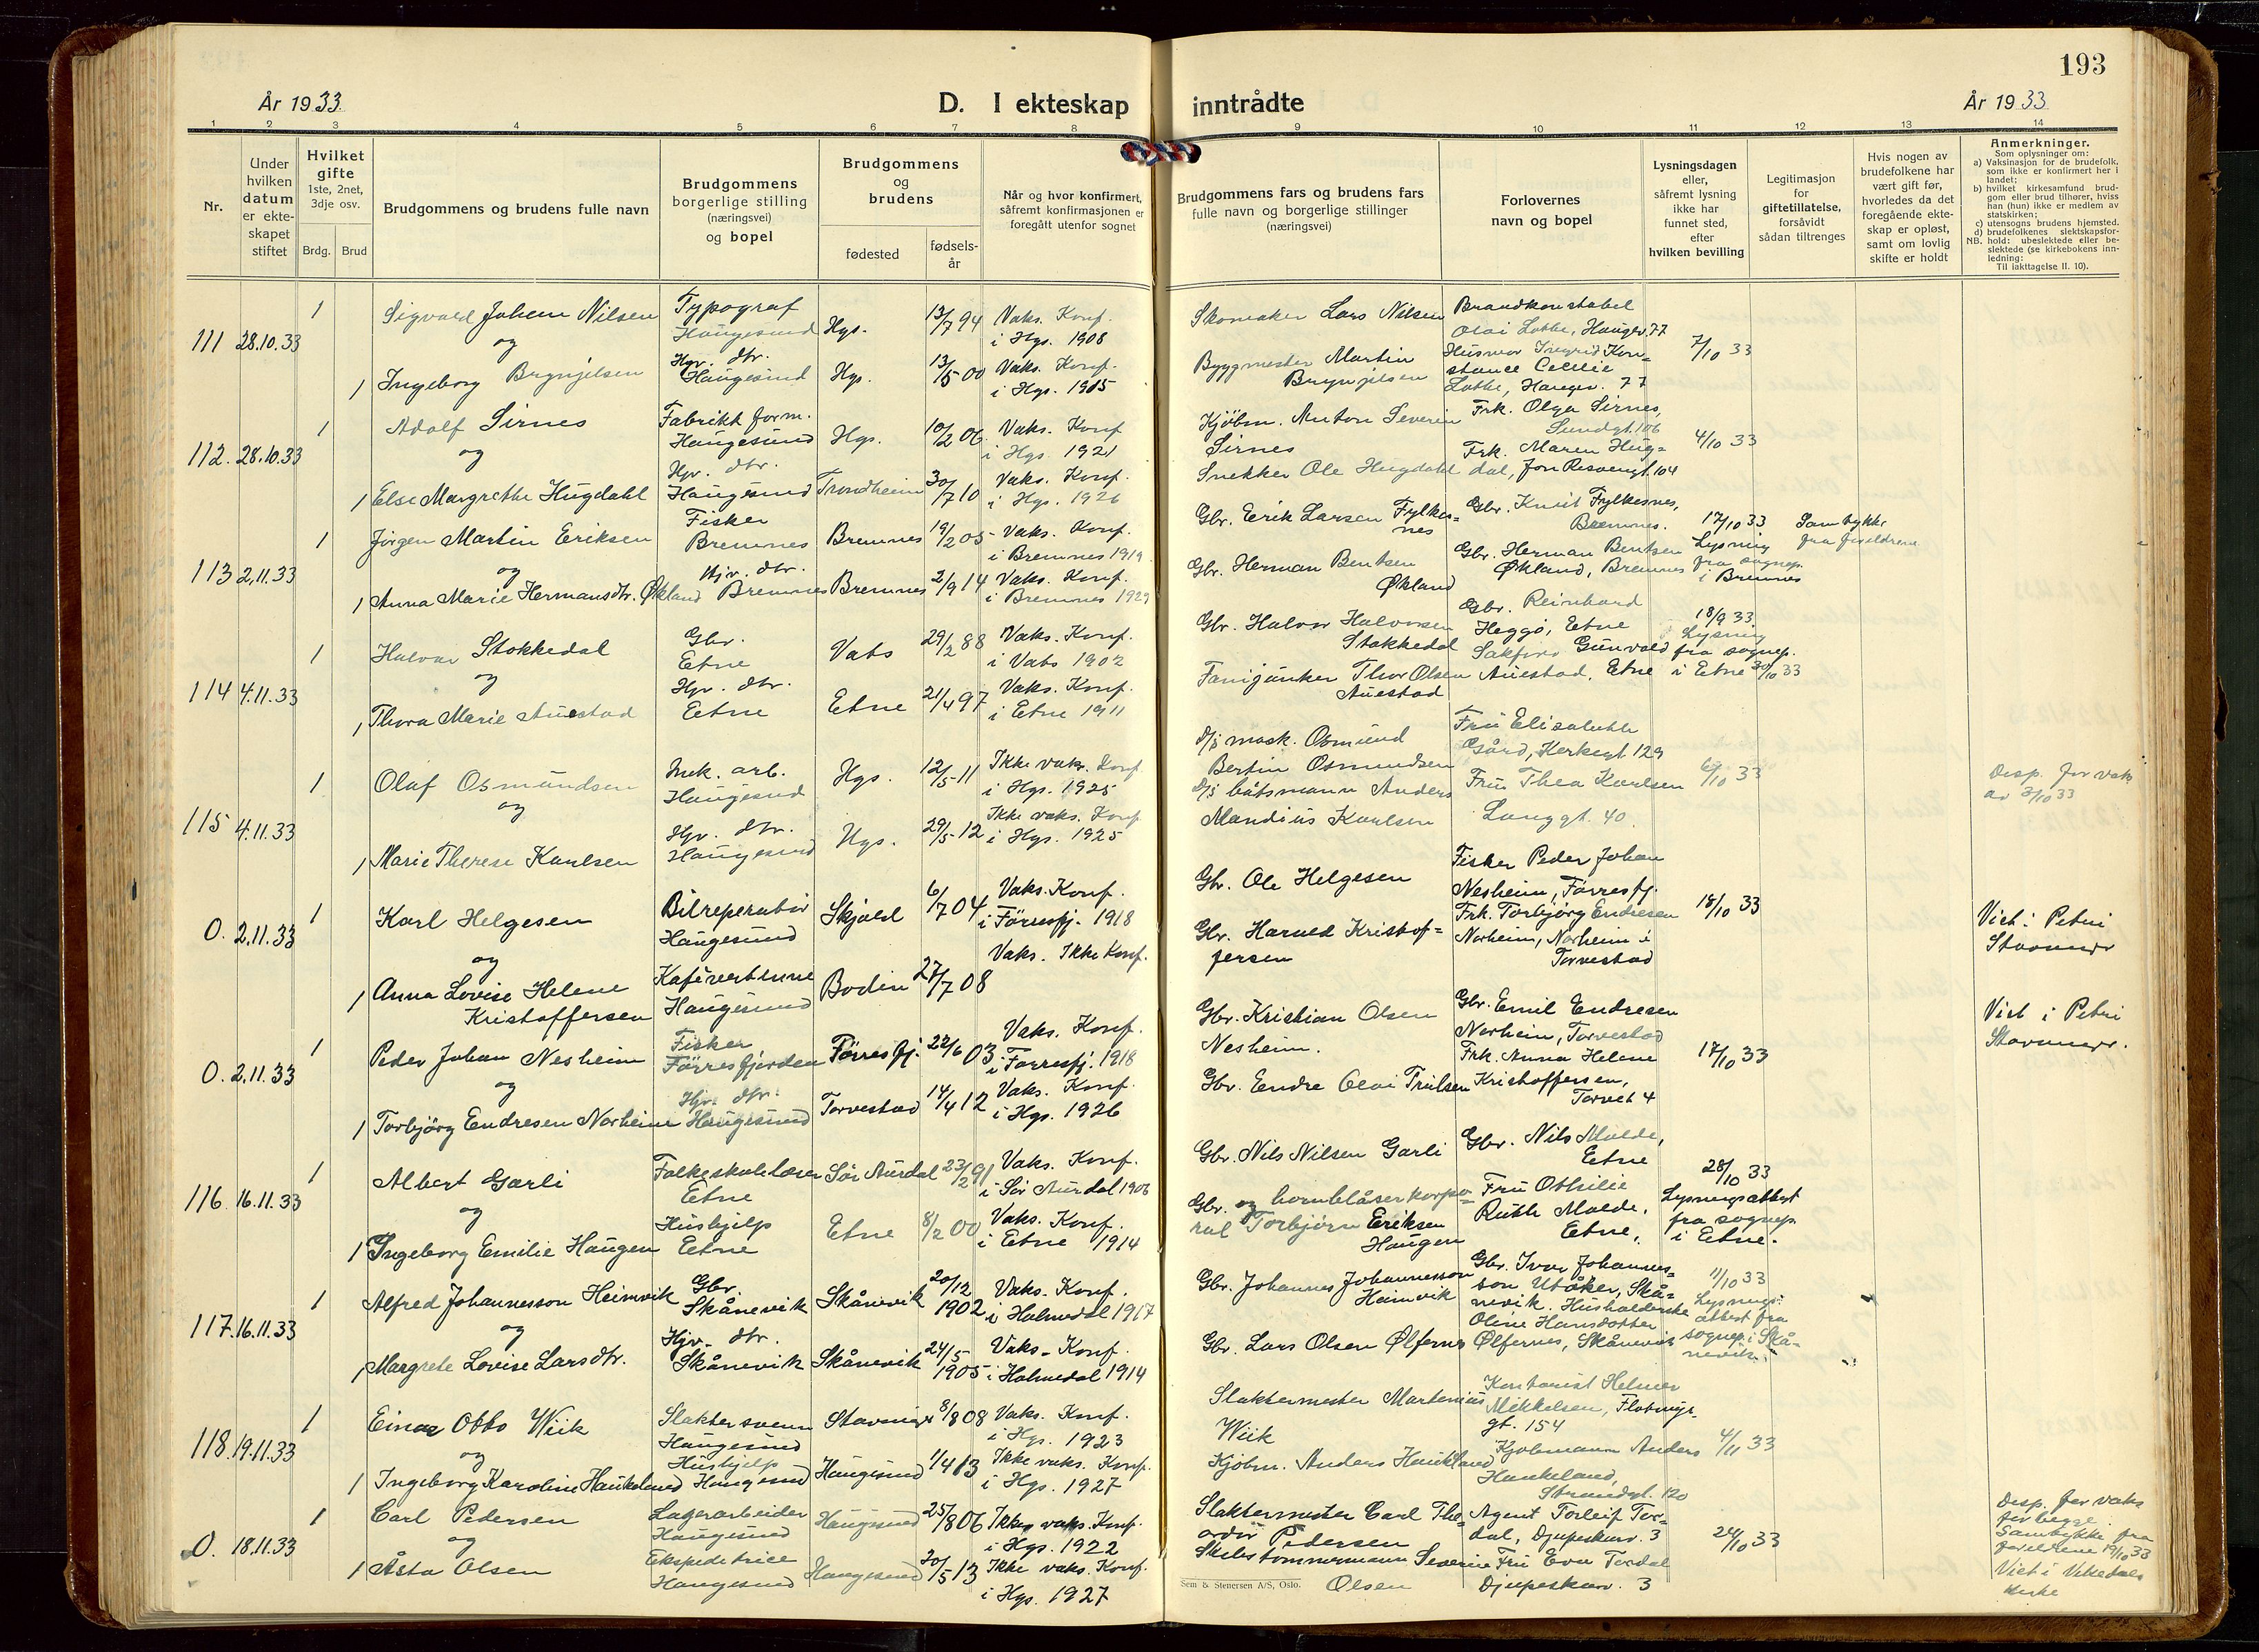 193
År 1933
D. I ekteskap inntrådte
År 1933
1 2 3 4 5 6 7 8 9 10 11 12 13 14
Nr.
Under hvilken datum er ekteskapet stiftet
Hvilket gifte
1ste, 2net, 3dje osv.
Brdg. Brud
Brudgommens og brudens fulle navn
Brudgommens borgerlige stilling (næringsvei) og bopel
Brudgommens og brudens
fødested
fødsels-år
Når og hvor konfirmert, såfremt konfirmasjonen er foregått utenfor sognet
Brudgommens fars og brudens fars fulle navn og borgerlige stillinger (næringsvei)
Forlovernes navn og bopel
Lysningsdagen eller, såfremt lysning ikke har funnet sted, efter hvilken bevilling
Legitimasjon for giftetillatelse, forsåvidt sådan tiltrenges
Hvis nogen av brudefolkene har vært gift før, hvorledes da det foregående ekteskap er opløst, samt om lovlig skifte er holdt
Anmerkninger.
Som oplysninger om:
a) Vaksinasjon for de brudefolk, som ikke er konfirmert her i landet;
b) hvilket kirkesamfund brudgom eller brud tilhører, hviss han (hun) ikke er medlem av statskirken;
c) utensogns brudens hjemsted.
d) brudefolkenes slektskapsforhold: ubeslektede eller beslektede (se kirkebokens innledning:
NB.
Til iakttagelse II. 10).
111 28.10.33
1 Sigvald Johan Nilsen Typograf Haugesund Hgs. 13/7 94 Vaks. Konf. i Hgs. 1908
og
1 Ingeborg Brynjelsen Hgr. dtr. Haugesund Hgs. 13/5 00 Vaks. Konf. i Hgs. 1915
Skomaker Lars Nilsen
Byggmester Martin Brynjelsen
Brandkonstabel Olai Lothe, Haugev. 77
Husmor Ingrid Konstance Cecilie Lothe, Haugev. 77
7/10 33
112. 28.10.33
1 Adolf Sirnes Fabrikkform. Haugesund Hgs. 10/2 06 Vaks. Konf i Hgs. 1921
og
1 Else Margrethe Hugdahl Hgr. dtr. Haugesund Trondheim 30/7 10 Vaks. Konf. i Hgs. 1926
Kjöbm. Anton Severin Sirnes
Snekker Ole Hugdahl
Frk. Olga Sirnes, Sundgt. 106
Frk. Maren Hugdal, Jon Rosvengt. 104
4/10 33
113 2.11.33
1 Jörgen Martin Eriksen Fisker Bremnes Bremnes 19/2 05 Vaks. Konf. i Bremnes 1919
og
1 Anna Marie Hermansdtr. Økland Hjv. dtr. Bremnes Bremnes 2/9 14 Vaks. Konf. i Bremnes 1929
Gbr. Erik Larsen Fylkesnes
Gbr. Herman Bentsen Økland
Gbr. Knut Fylkesnes, Bremnes.
Gbr. Herman Bentsen Økland, Bremnes
17/10 33 Lysning fra sognep. i Bremnes
Samtykke fra foreldrene
114 4.11.33
1 Halvor Stokkedal Gbr. Etne Vats 29/2 88 Vaks. Konf. i Vats 1902
og
1 Thora Marie Auestad Hgr. dtr. Etne Etne 21/4 97 Vaks. Konf. i Etne 1911
Gbr. Halvor Halvorsen Stokkedal
Fanejunker Thor Olsen Auestad
Gbr. Reinhard Heggö, Etne
Gunvald Auestad, Etne
18/9 33 Lysning fra sognep. i Etne 30/10 33
115 4.11.33
1 Olaf Osmundsen Mek. arb. Haugesund Hgs. 12/5 11 Ikke vaks. Konf i Hgs. 1925
og
1 Marie Therese Karlsen Hgr. dtr. Haugesund Hgs. 29/5 12 Ikke vaks. Konf i Hgs. 1925
D/s mask. Osmund Bertin Osmundsen
D/s båtsmann Anders Mandius Karlsen
Fru Elisabeth Gård, Kerkegt. 129
Fru Thea Karlsen Langgt. 40.
6/10 33
Disp. for vaks av 3/10 33
0. 2.11.33
1 Karl Helgesen Bilreperatör Haugesund Skjold 6/7 04 Vaks. Konf. i Förresfj. 1918
og
1 Anna Lovise Helene Kristoffersen Kafévertinne Haugesund Bodin 27/7 08 Vaks. Ikke Konf.
Gbr. Ole Helgesen
Gbr. Harald Kristoffersen
Fisker Peder Johan Nesheim, Förresfj.
Frk. Torbjörg Endresen Norheim, Norheim i Torvestad
18/10 33
Viet i Petri Stavanger
0. 2.11.33
1 Peder Johan Nesheim Fisker Förresfjorden Förresfj. 22/6 03 Vaks. Konf. i Förresfj. 1918
og
1 Torbjörg Endresen Norheim Hjv. dtr. Haugesund Torvestad 14/4 12 Vaks. Konf. i Hgs. 1926
Gbr. Kristian Olsen Nesheim.
Gbr. Endre Olai Trulsen
Gbr. Emil Endresen Norheim, Torvestad
Frk. Anna Helene Kristoffersen, Torvet 4
17/10 33
Viet i Petri Stavanger.
116 16.11.33
1 Albert Garli Folkeskolelærer Etne Sör Aurdal 23/2 91 Vaks. Konf. i Sör Aurdal 1906
og
1 Ingeborg Emilie Haugen Hushjelp Etne Etne 8/2 00 Vaks. Konf. i Etne 1914
Gbr. Nils Nilsen Garli
Gbr. og hornblåserkorporal Torbjörn Eriksen Haugen
Gbr. Nils Molde, Etne
Fru Othilie Ruth Molde, Etne.
28/10 33 Lysningsattest fra sognep. i Etne.
117. 16.11.33
1 Alfred Johannesson Heimvik Gbr. Skånevik Skånevik 20/12 1902 Vaks. Konf. i Holmedal 1917
og
1 Margrete Lovise Larsdtr. Hjv. dtr. Skånevik Skånevik 24/5 1905 Vaks. Konf. i Holmedal 1914
Gbr. Johannes Johannesson Heimvik
Gbr. Lars Olsen Ølfernes
Gbr. Ivar Johannesson Utåker, Skånevik. Husholderske Oline Hansdotter Ølfernes, Skånevik
11/10 33 Lysningsattest fra sognep. i Skånevik.
118. 19.11.33
1 Einar Otto Wiik Slaktersvenn Haugesund Stavanger 8/8 08 Vaks. Konf. i Hgs. 1923
og
1 Ingeborg Karoline Haukeland Hushjelp Haugesund Haugesund 1/4 13 Ikke vaks. Konf. i Hgs. 1927
Slaktermester Martinius Wiik
Kjöbm. Anders Haukeland
Kontorist Helmer Mikkelsen, Flotmyrgt. 154
Kjöbmann Anders Haukeland, Strandgt. 120
4/11 33
0. 18.11.33
1 Carl Pedersen Lagerarbeider Haugesund Haugesund 25/8 06 Ikke vaks. Konf. i Hgs. 1922
og
1 Åsta Olsen Ekspeditrice Haugesund Haugesund 30/5 13 Ikke vaks. Konf. i Hgs. 1927
Slaktermester Carl Theodor Pedersen
Skibstömmermann Severin Olsen
Agent Torleif Tordal, Djupeskarv. 3
Fru Eva Tordal Djupeskarv. 3
24/10 33
Disp. for vaks for begge.
Samtykke fra foreldrene 19/10 33
Viet i Vikedals kirke
Sem & Stenersen A/S, Oslo.